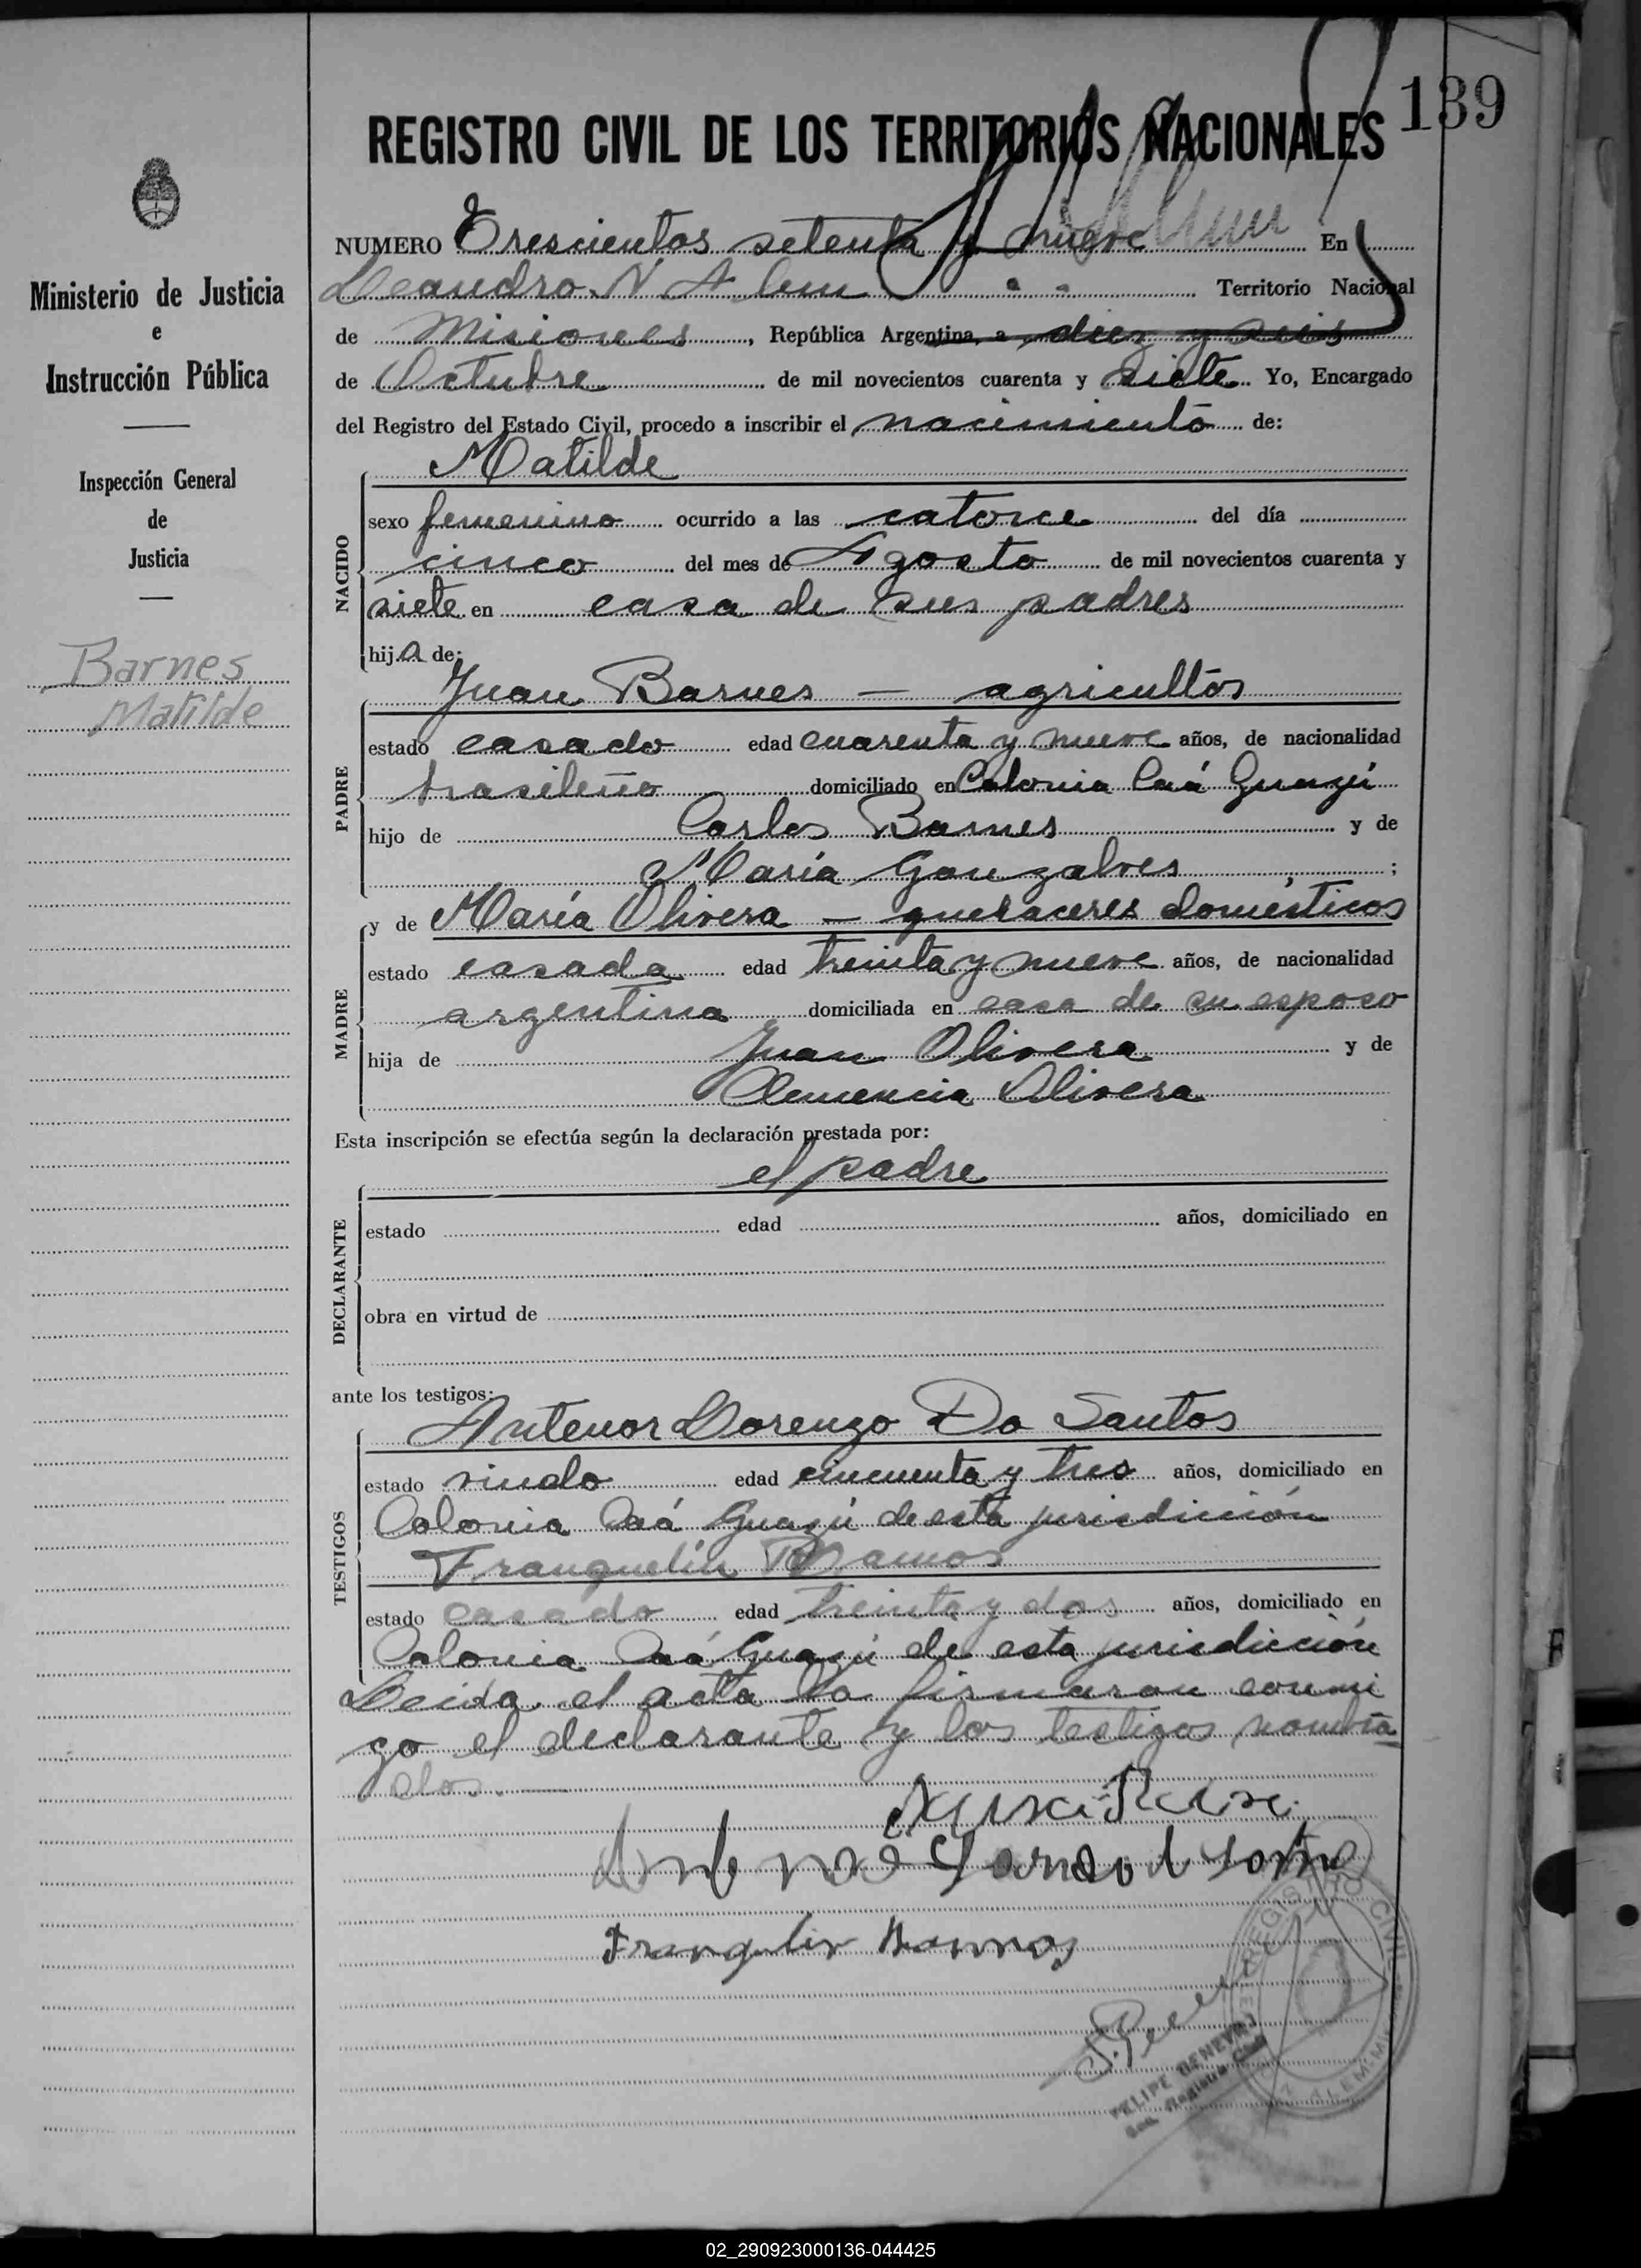 139
REGISTRO CIVIL DE LOS TERRITORIOS NACIONALES
NUMERO Trescientos setenta y nueve En
Leandro N. Alem " " Territorio Nacional
de Misiones, República Argentina, a diez y seis
de Octubre de mil novecientos cuarenta y siete. Yo, Encargado
del Registro del Estado Civil, procedo a inscribir el nacimiento de:
Matilde
NACIDO
sexo femenino ocurrido a las catorce del día
cinco del mes de Agosto de mil novecientos cuarenta y
siete en casa de sus padres
hija de:
Juan Barnes — agricultor
PADRE
estado casado edad cuarenta y nueve años, de nacionalidad
brasileño domiciliado en Colonia Caá Guazú
hijo de Carlos Barnes y de
María Gonzalves ;
y de María Olivera — quehaceres domésticos
MADRE
estado casada edad treinta y nueve años, de nacionalidad
argentina domiciliada en casa de su esposo
hija de Juan Olivera y de
Clemencia Olivera
Esta inscripción se efectúa según la declaración prestada por:
el padre
DECLARANTE
estado edad años, domiciliado en
obra en virtud de
ante los testigos:
Antenor Lorenzo Do Santos
TESTIGOS
estado viudo edad cincuenta y tres años, domiciliado en
Colonia Caá Guazú de esta jurisdicción
Franquelín Ramos
estado casado edad treinta y dos años, domiciliado en
Colonia Caá Guazú de esta jurisdicción
Leída el acta la firmaron conmi
go el declarante y los testigos nombra
dos. —
Franquelin Ramos
REGISTRO CIVIL
FELIPE
Ministerio de Justicia
e
Instrucción Pública
Inspección General
de
Justicia
Barnes
Matilde
02_290923000136-044425